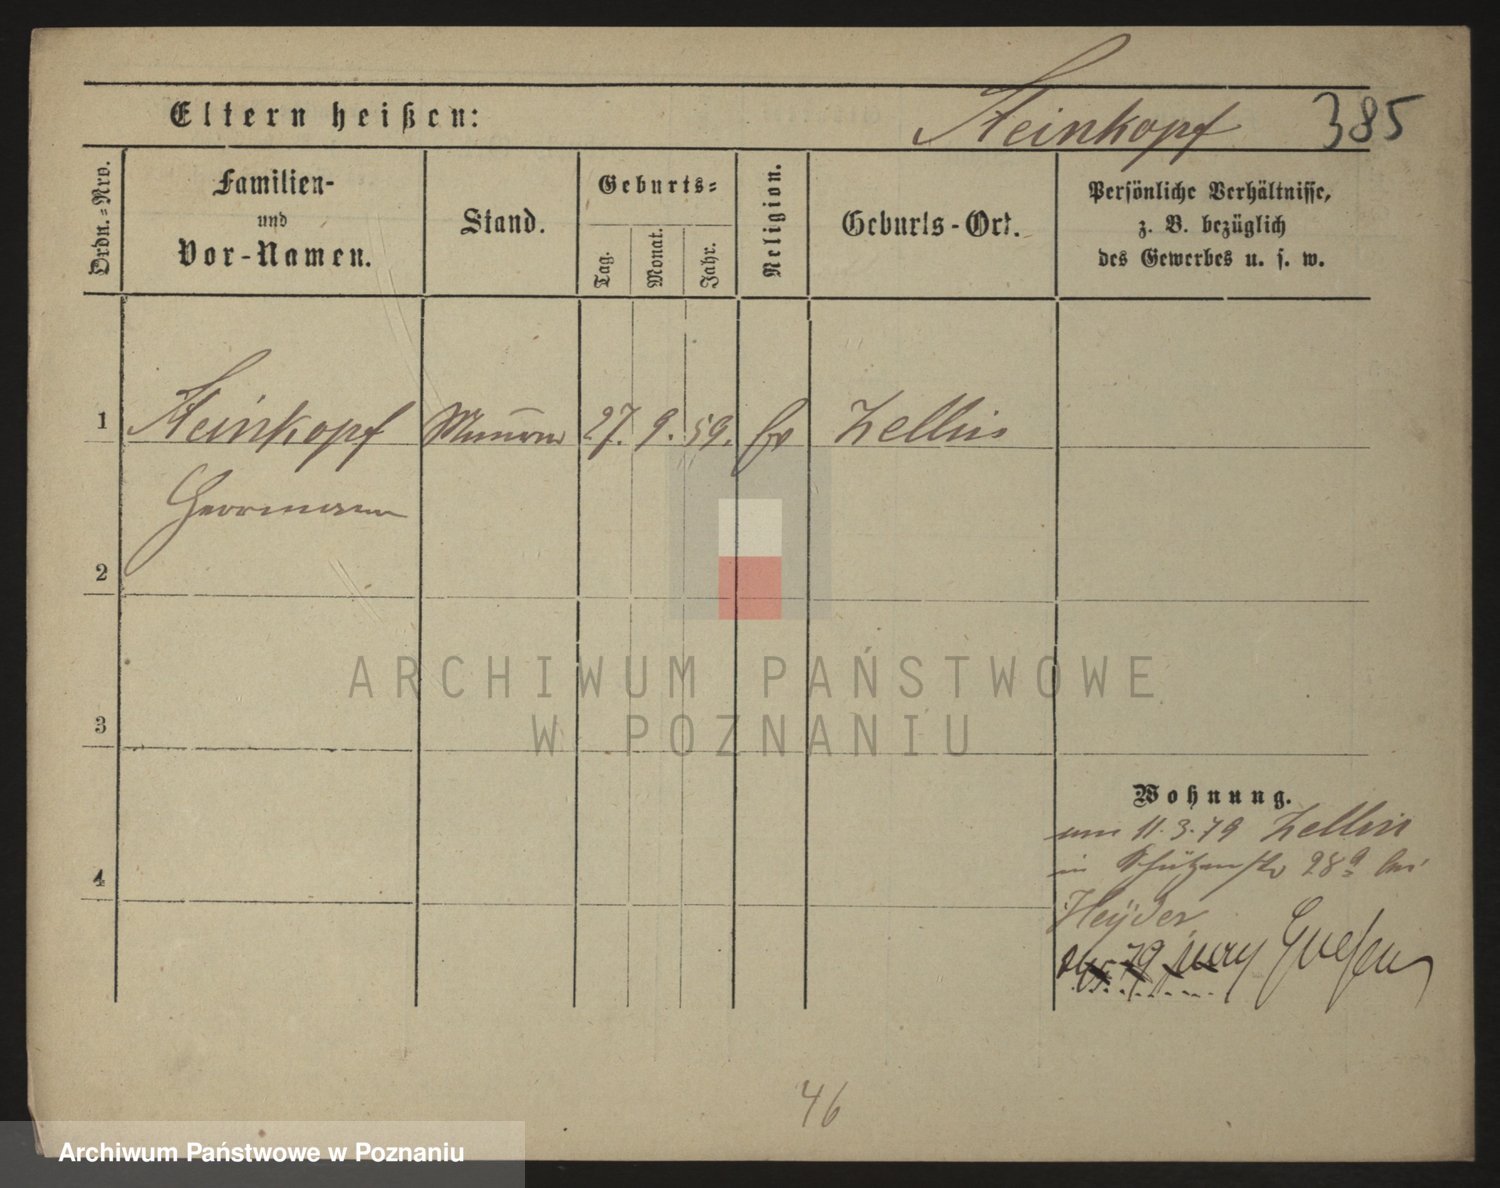 Steinkopf 385
Eltern heißen:
Ordn.=Nro.
Familien-
und
Vor-Namen.
Stand.
Geburts=
Tag.
Monat.
Jahr.
Religion.
Geburts-Ort.
Persönliche Verhältnisse,
z. B. bezüglich
des Gewerbes u. s. w.
1 Steinkopf Maurer 27. 9. 59. ev Zellin
Herrmann
2
3
4
ARCHIWUM PAŃSTWOWE
W POZNANIU
Wohnung.
am 11. 3. 79 Zellin
in Schützenstr 28a bei
Heyder
79 nach Gnesen
46
Archiwum Państwowe w Poznaniu